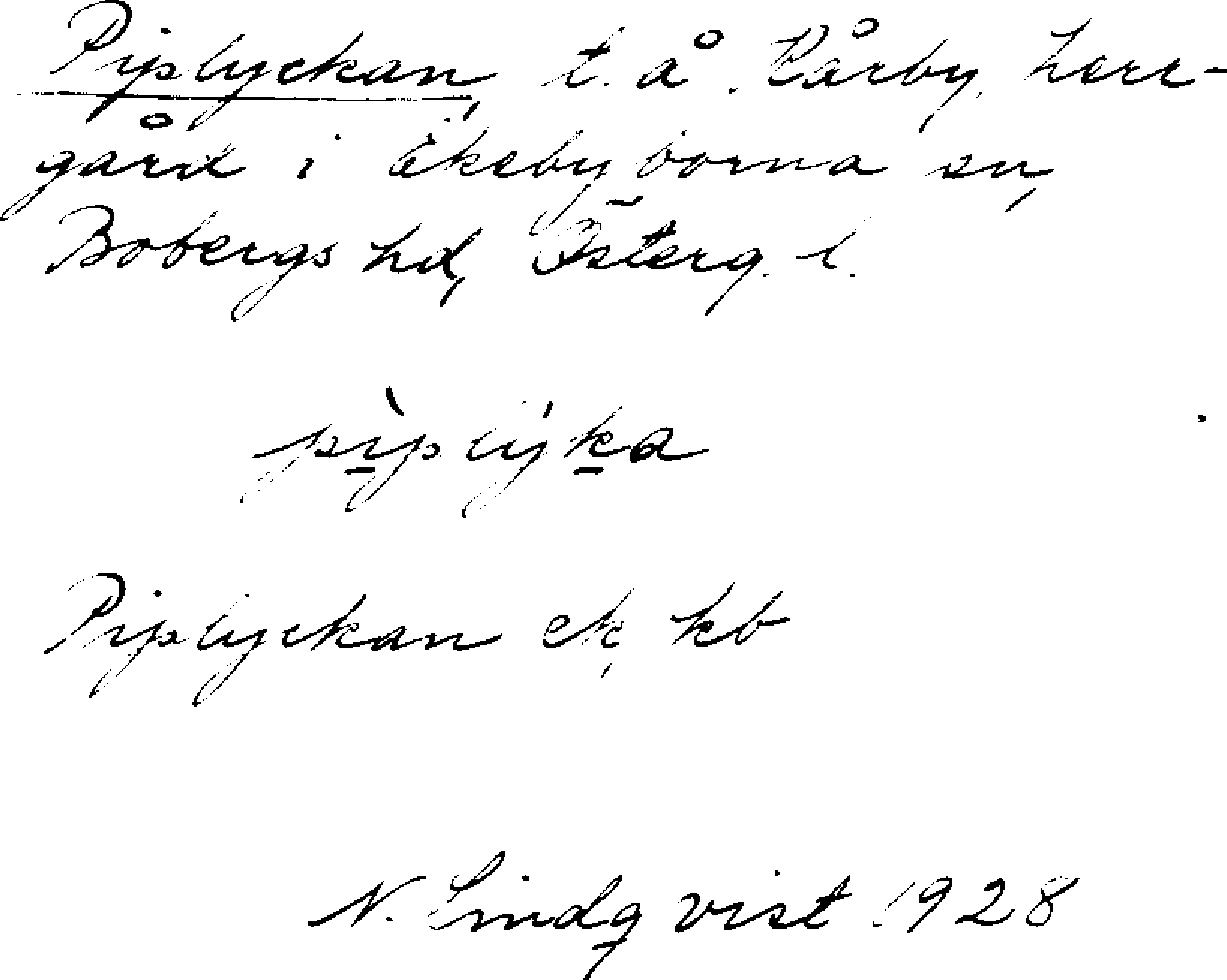 Piplyckan, t. å. Kårby, herr-
gård i Ekebyborna sn,
Bobergs hd, Österg. l.
pìplýka
Piplyckan ek, kb
N. Lindqvist 1928